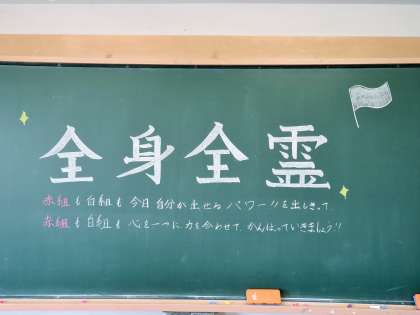 全身全霊
赤組も白組も今日自分が出せるパワーを出しきって、
赤組も白組も心を一つに力を合わせて、がんばっていきましょう!!